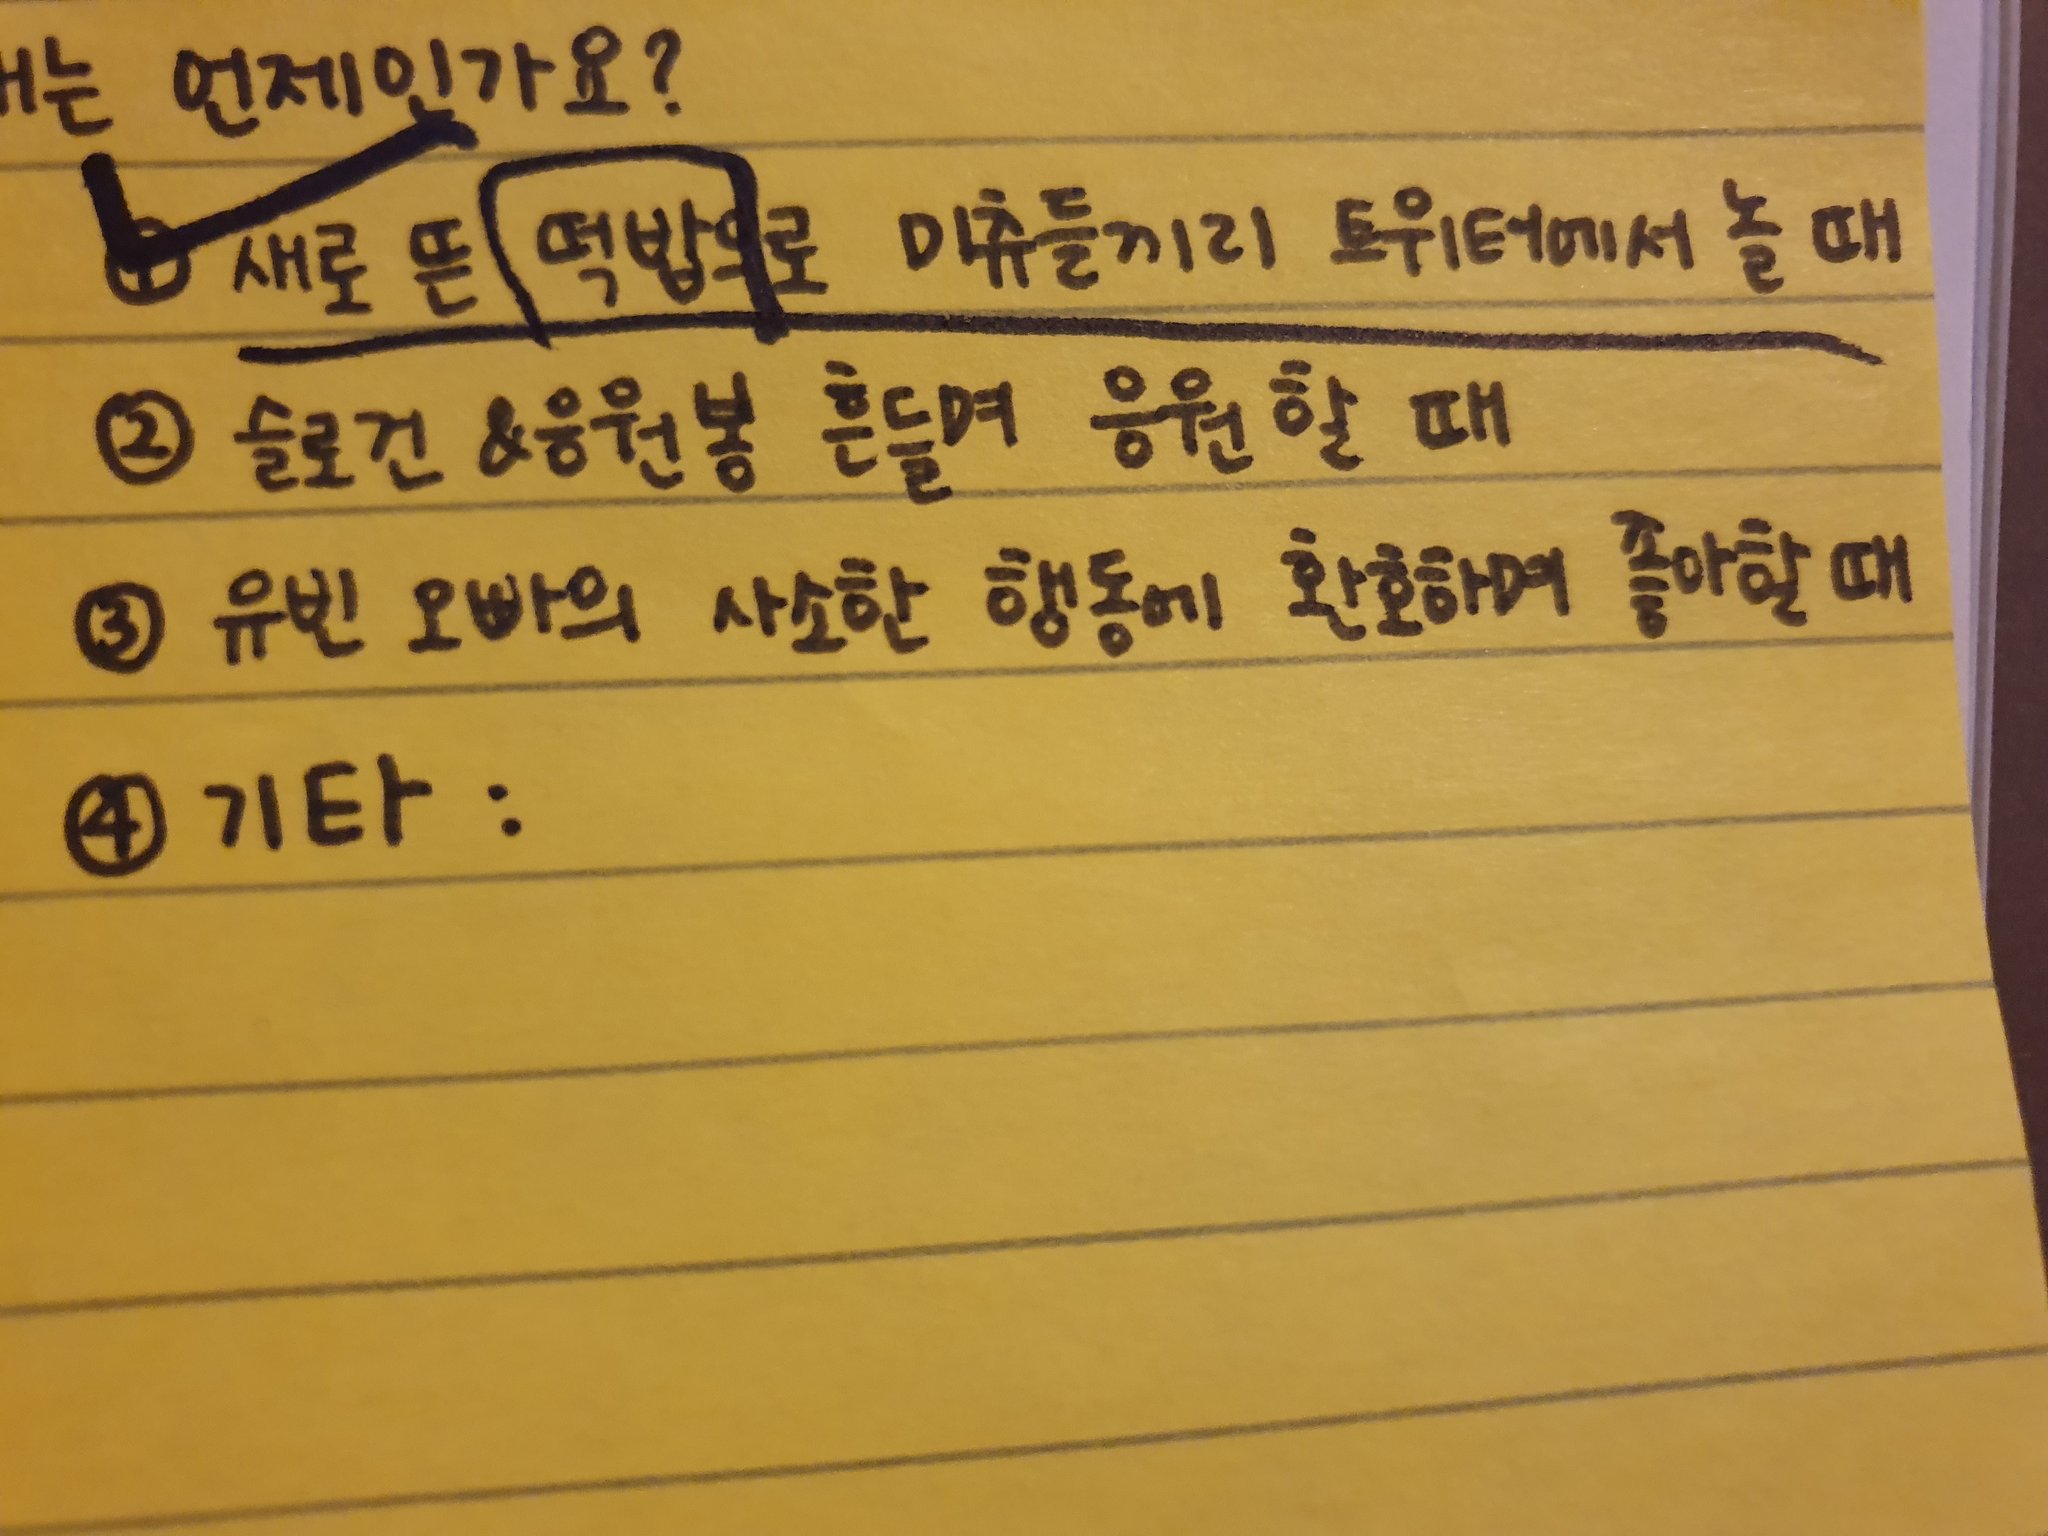 때는 언제인가요?
① 새로 뜬 떡밥으로 미츄들끼리 트위터에서 놀 때
② 슬로건 &응원봉 흔들며 응원할 때
③ 유빈 오빠의 사소한 행동에 환호하며 좋아할 때
④ 기타 :